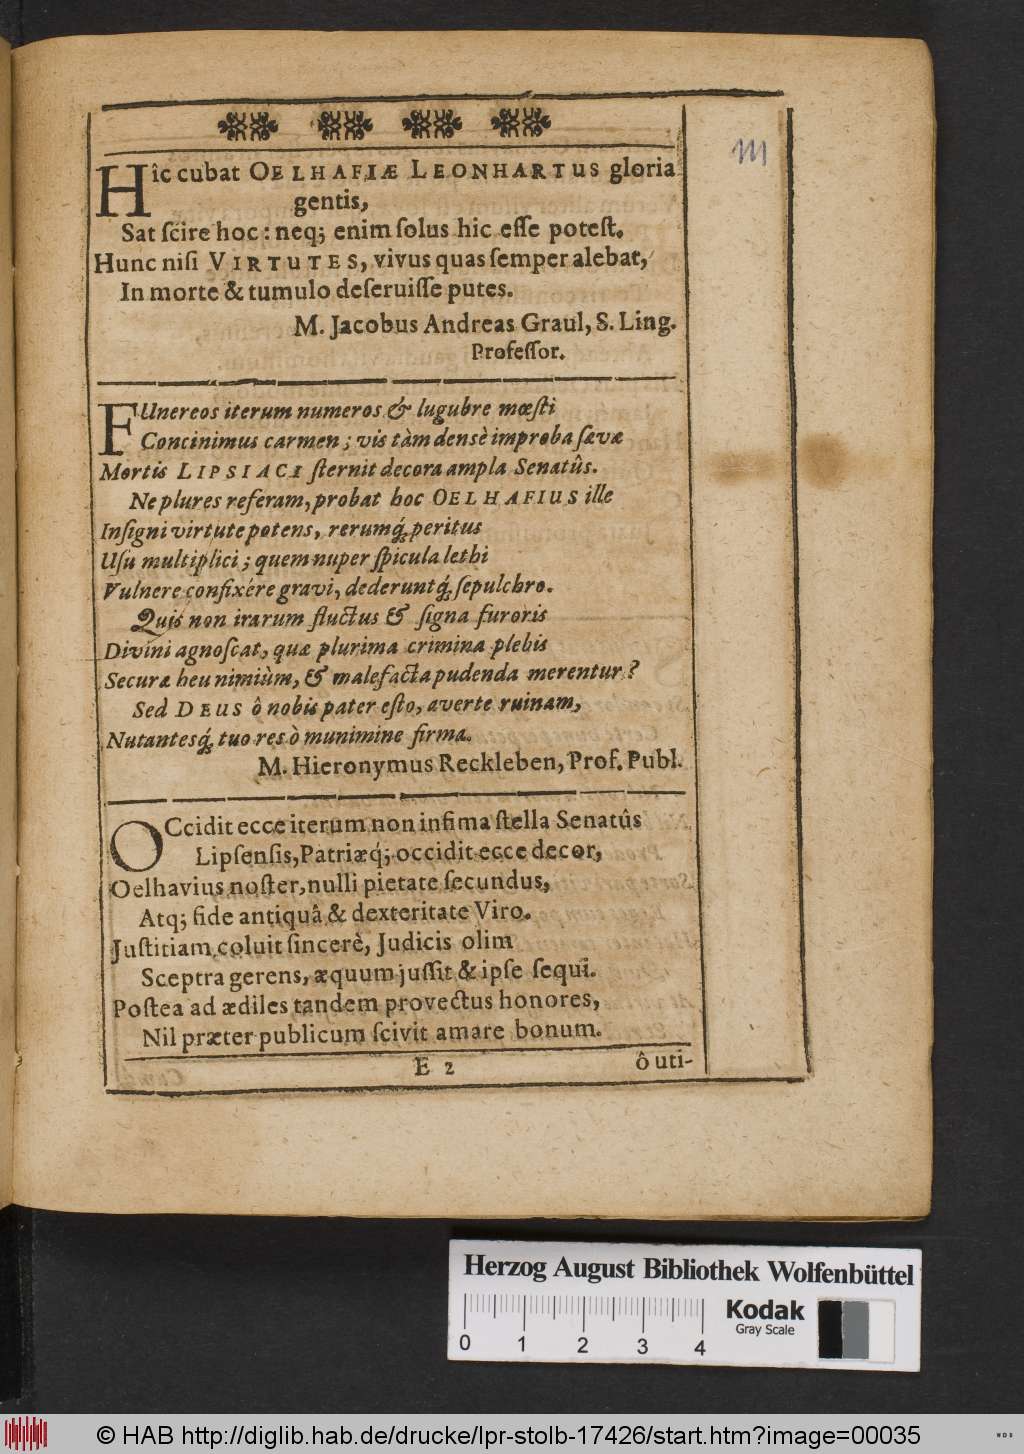 Hîc cubat OELHAFIÆ LEONHARTUS gloria
gentis,
Sat ſcire hoc : neq; enim ſolus hic eſſe poteſt.
Hunc niſi VIRTUTES, vivus quas ſemper alebat,
In morte & tumulo deſeruiſſe putes.
M. Jacobus Andreas Graul, S. Ling.
Profeſſor.
FUnereos iterum numeros & lugubre mœſti
Concinimus carmen ; vis tàm densè improba ſævæ
Mortis LIPSIACI ſternit decora ampla Senatûs.
Ne plures referam, probat hoc OELHAFIUS ille
Inſigni virtute potens, rerumq́; peritus
Uſu multiplici ; quem nuper ſpicula lethi
Vulnere confixére gravi, dederuntq́; ſepulchro.
Quis non irarum fluctus & ſigna furoris
Divini agnoſcat, quæ plurima crimina plebis
Securæ heu nimiùm, & malefacta pudenda merentur ?
Sed DEUS ô nobis pater eſto, averte ruinam,
Nutantesq́; tuo res ò munimine firma.
M. Hieronymus Reckleben, Prof. Publ.
OCcidit ecce iterum non infima ſtella Senatûs
Lipſenſis, Patriæq́; occidit ecce decor,
Oelhavius noſter, nulli pietate ſecundus,
Atq; fide antiquâ & dexteritate Viro.
Juſtitiam coluit ſincerè, Judicis olim
Sceptra gerens, æquum juſſit & ipſe ſequi.
Poſtea ad ædiles tandem provectus honores,
Nil præter publicum ſcivit amare bonum.
E 2
ô uti-
Herzog August Bibliothek Wolfenbüttel
0 1 2 3 4
Kodak
Gray Scale
© HAB http://diglib.hab.de/drucke/lpr-stolb-17426/start.htm?image=00035